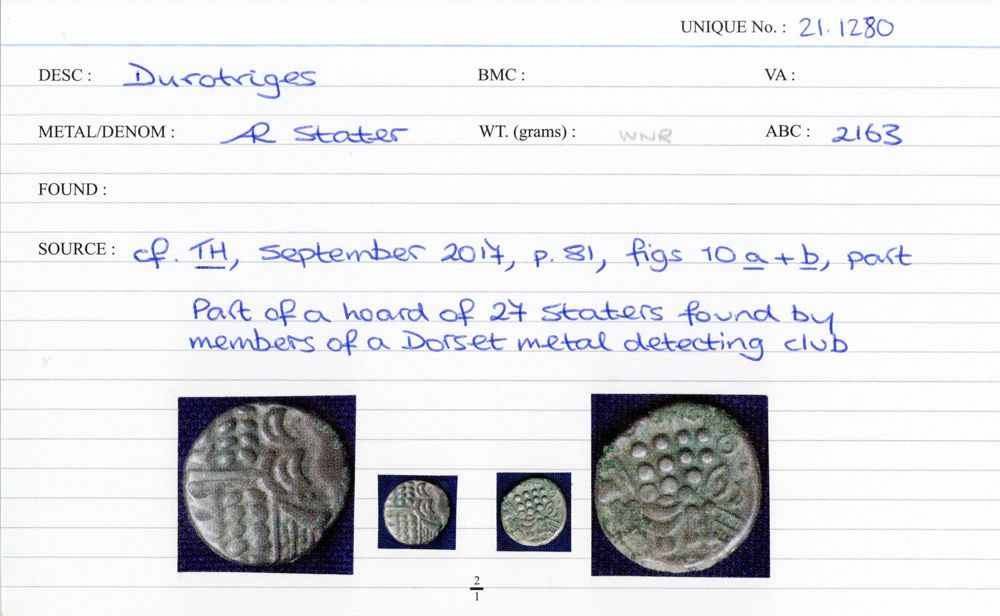 UNIQUE No. : 21.1280
DESC : Durotriges BMC : VA :
METAL/DENOM : AR Stater WT. (grams) : WNR ABC : 2163
FOUND :
SOURCE : cf. TH, September 2017, p. 81, figs 10 a + b, part
Part of a hoard of 27 staters found by
members of a Dorset metal detecting club
2
1